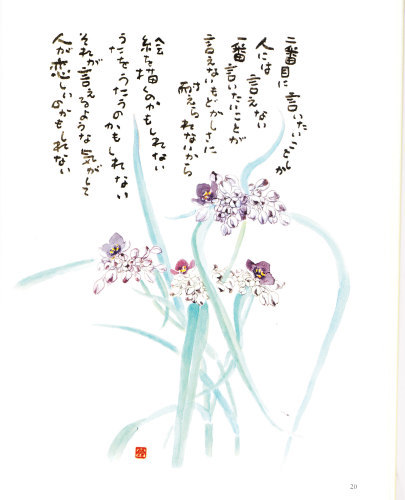 二番目に言いたいことしか
人には言えない
一番言いたいことが
言えないもどかしさに
耐えられないから
絵を描くのかもしれない
うたをうたうのかもしれない
それが言えるような気がして
人が恋しいのかもしれない
20